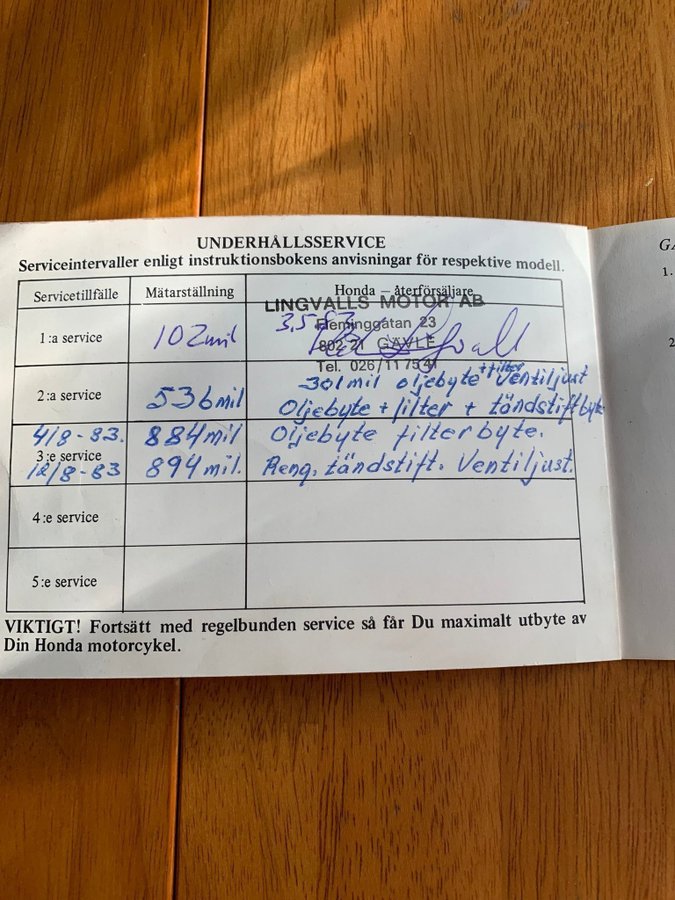 UNDERHÅLLSSERVICE
Serviceintervaller enligt instruktionsbokens anvisningar för respektive modell.
Servicetillfälle Mätarställning Honda – återförsäljare
LINGVALLS MOTOR AB
1:a service 102mil
Fleminggatan 23
802 21 GÄVLE
Tel. 026/11 75 41
301mil oljebyte + filter Ventiljust
2:a service 536mil Oljebyte + filter + tändstiftbyte
4/8-83. 884mil Oljebyte filterbyte.
3:e service
12/8-83 894mil. Reng, tändstift. Ventiljust.
4:e service
5:e service
VIKTIGT! Fortsätt med regelbunden service så får Du maximalt utbyte av
Din Honda motorcykel.
1.
2